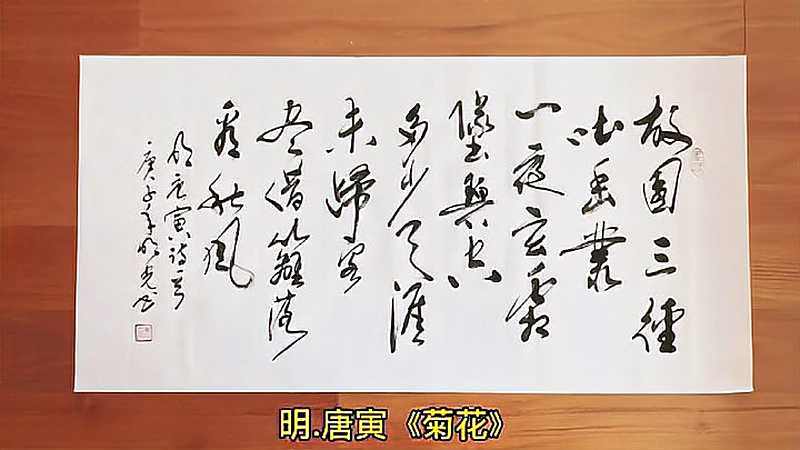 故園三徑
吐幽叢
一夜玄霜
墜碧空
多少天涯
未歸客
尽借籬落
看秋風
明唐寅诗一首
庚子年明光书
明.唐寅《菊花》